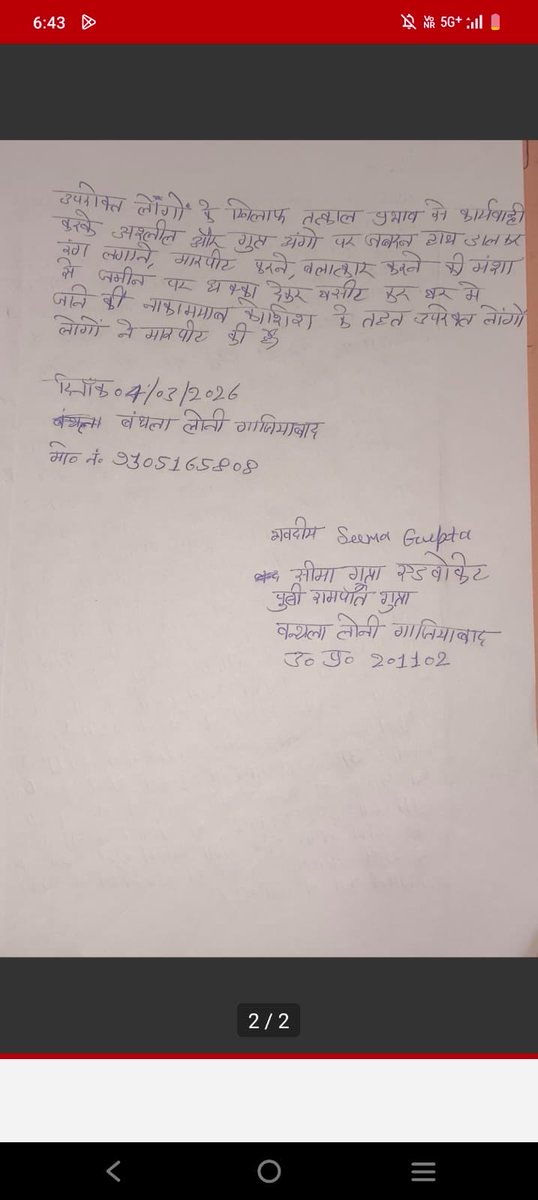 6:43
Vo NR 5G+
उपरोक्त लोंगों के खिलाफ तत्काल प्रभाव से कार्यवाही
करके अश्लील और गुप्त अंगो पर जबरन हाथ डाल कर
रंग लगाने, मारपीट करने, बलात्कार करने की मंशा
से जमीन पर धक्का देकर घसीट कर घर मे
जाने की नाकाममाब कोशिश के तहत उपरक्त लोंगो
लोगों ने मारपीट की है
दिनाँक 04/03/2026
बंथला लोनी गाजियाबाद
मो० नं. 9305165808
भवदीय Seema Gupta
सीमा गुप्ता एडवोकेट
पुत्री रामपति गुप्ता
बन्थला लोनी गाजियाबाद
उ० प्र० 201102
2 / 2